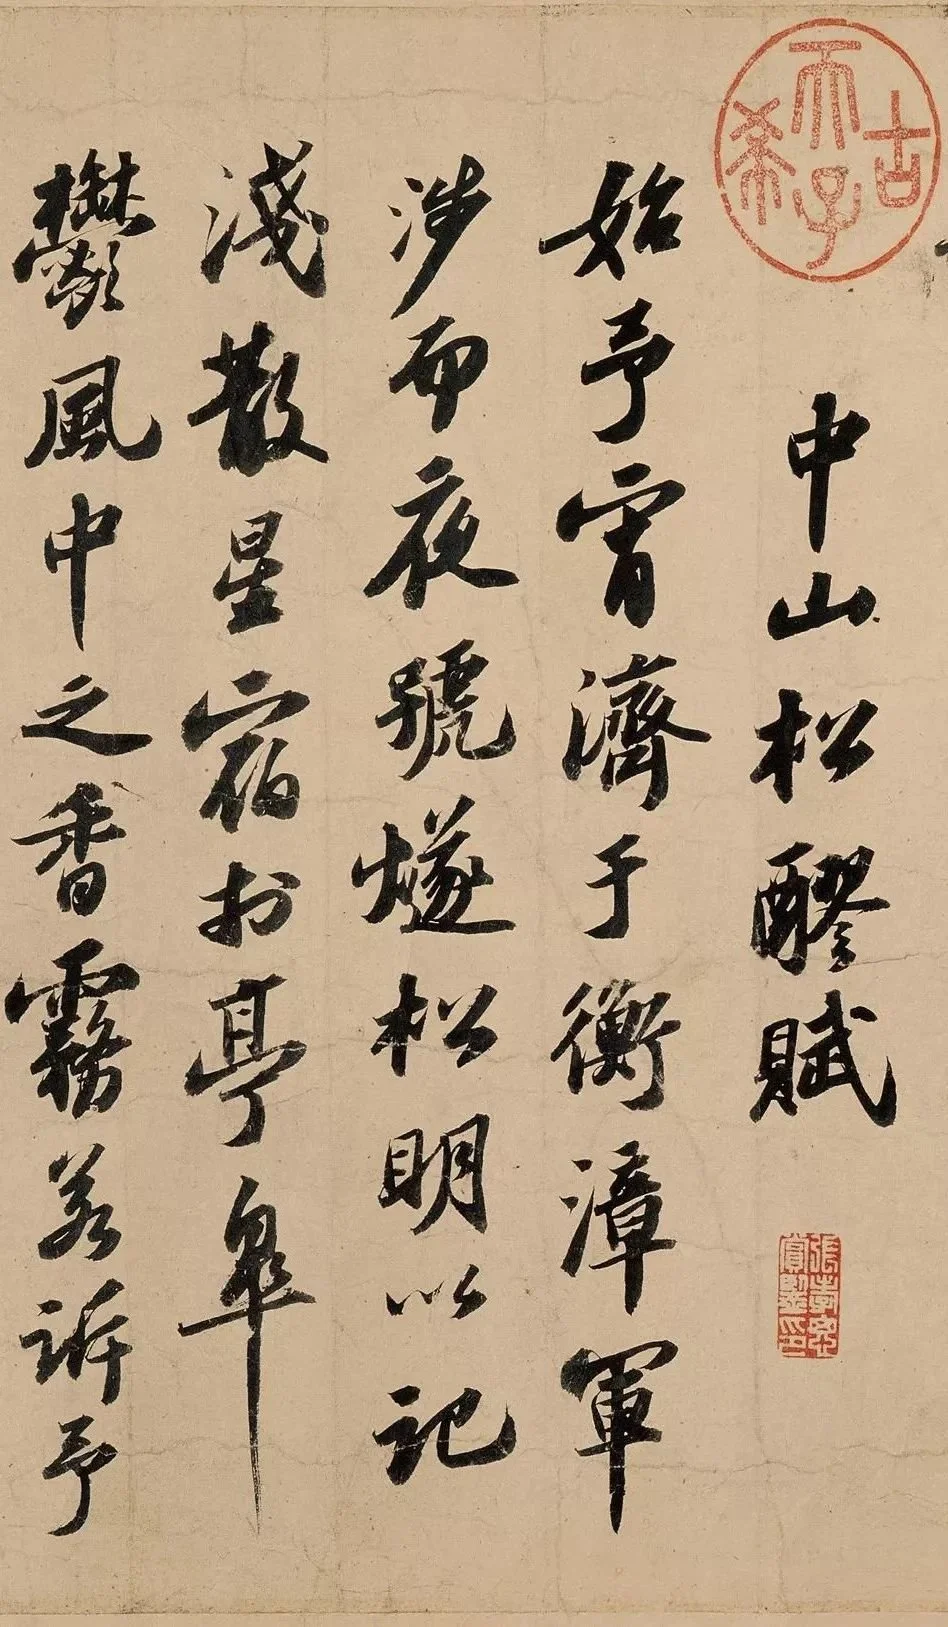 古
希
天子
中山松醪賦
始予宵濟于衡漳軍
涉而夜號燧松明以記
淺散星宿於亭皋
鬱風中之香霧若訴予